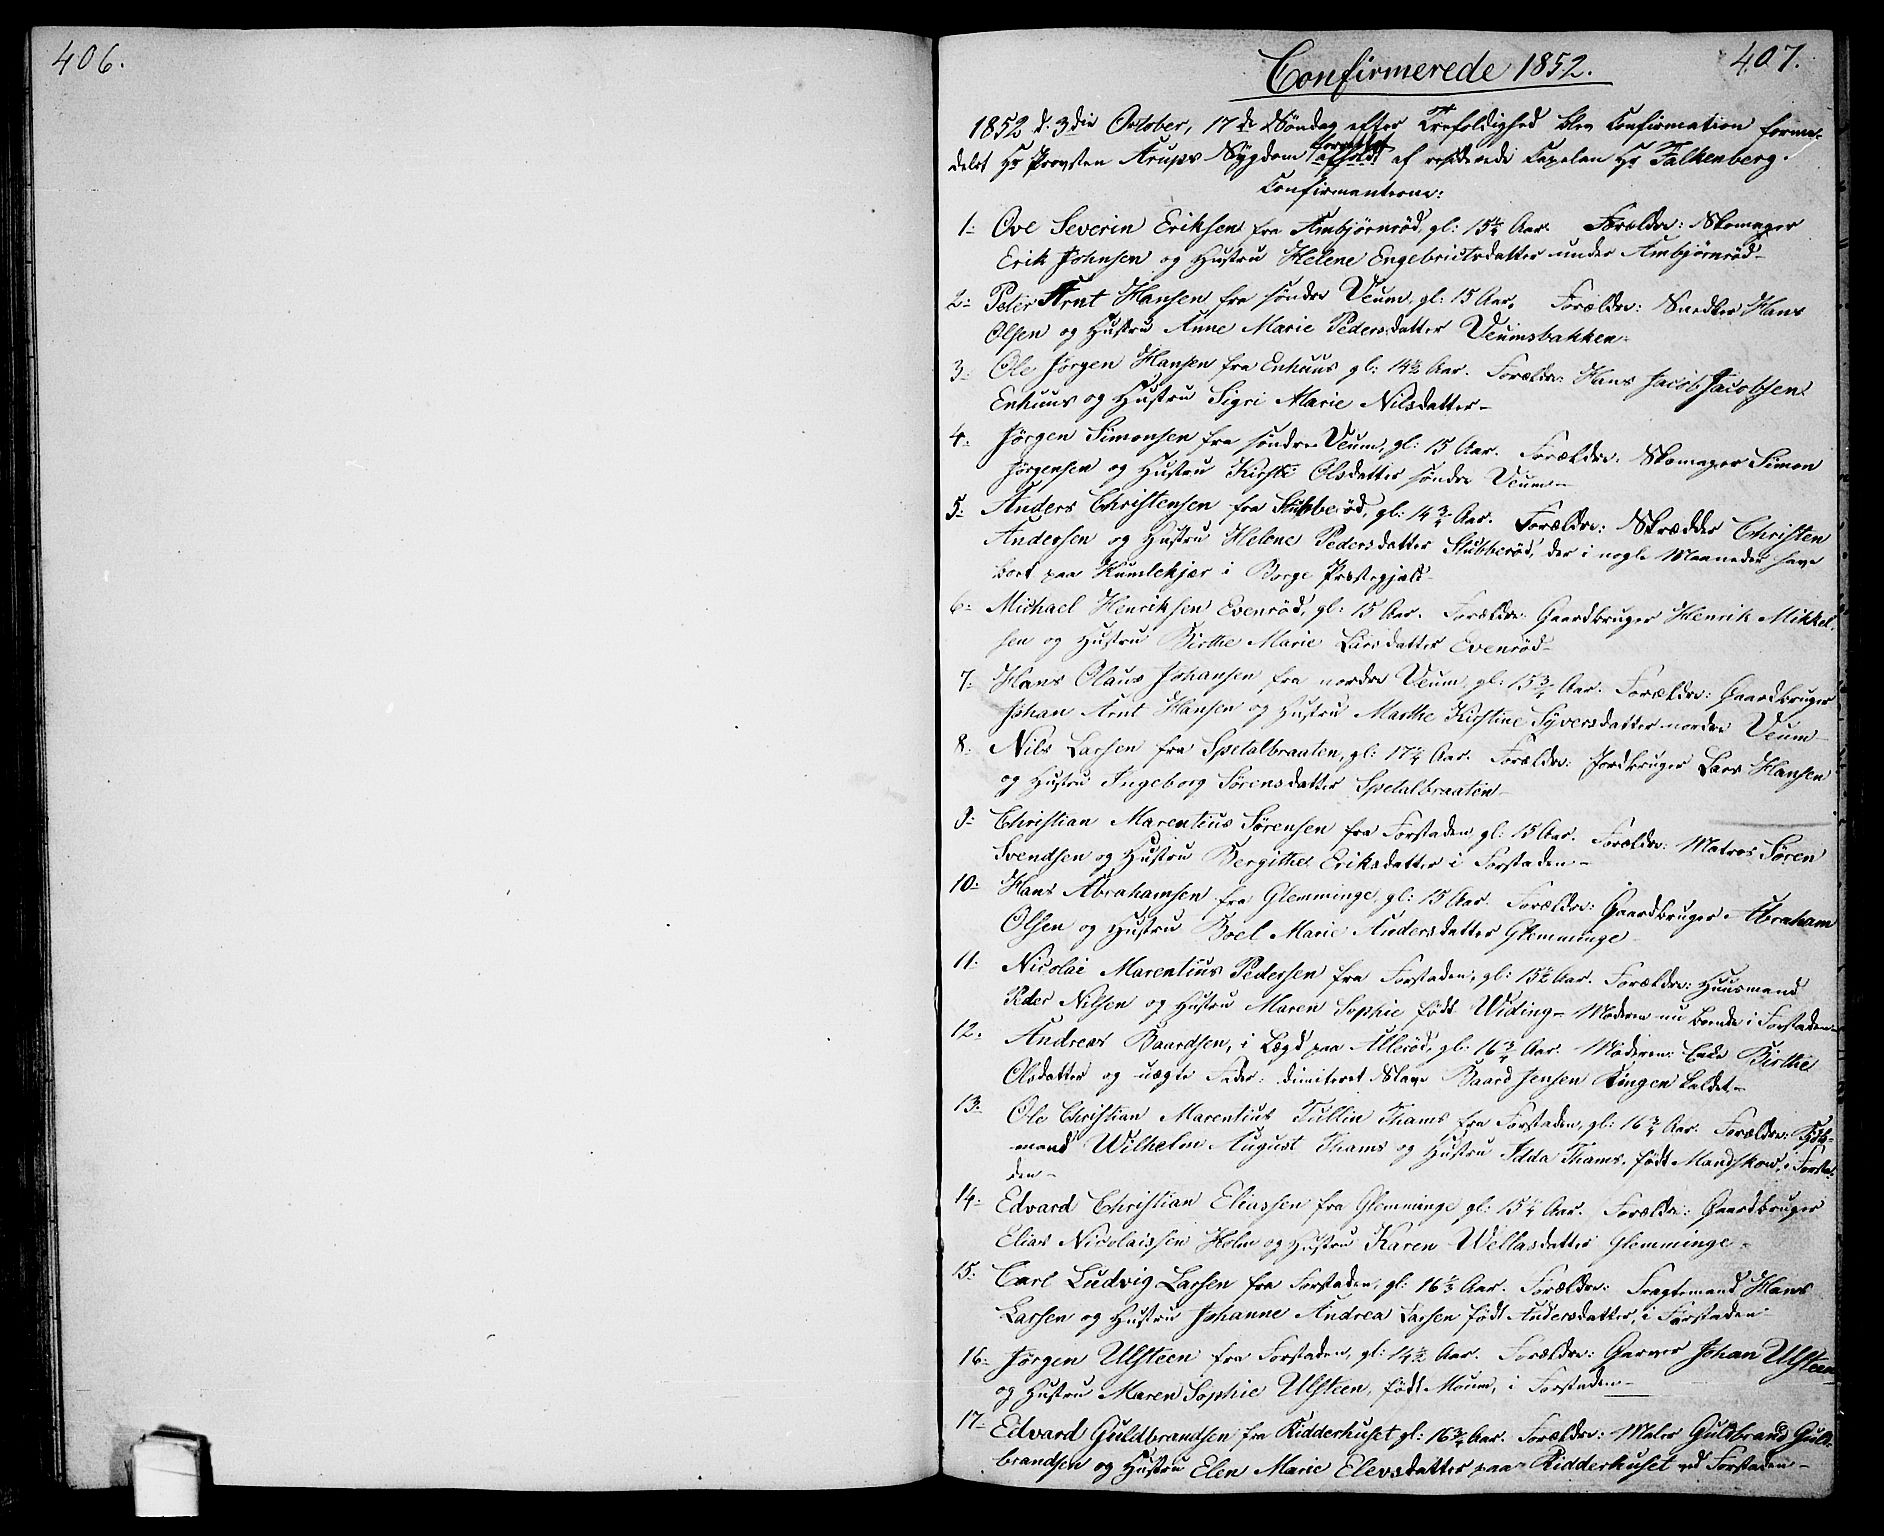 406.
407.
Confirmerede 1852.
1852 d: 3die October, 17de Söndag efter Trefoldighed blev Confirmation forme-
delst Hr Provsten Arups Sygdom forrettet af residerede Capelan Hr Falkenberg.
Confirmanterne:
1: Ove Severin Eriksen fra Ambjørnröd, gl: 15¼ Aar. Forældre: Skomager
Erik Johnsen og Hustru Helene Engebrictsdatter under Ambjørnröd-
2: Peter Arnt Hansen fra søndre Veum, gl: 15 Aar. Forældre: Snedker Hans
Olsen og Hustru Anne Marie Pedersdatter Veumsbakken-
3: Ole Jørgen Hansen fra Enhuus gl: 14½ Aar. Forældre: Hans Jacob Jacobsen
Enhuus og Hustru Sigri Marie Nilsdatter-
4: Jørgen Simonsen fra søndre Veum, gl: 15 Aar. Forældre: Skomager Simon
Jørgensen og Hustru Kirsti Olsdatter søndre Veum-
5: Anders Christensen fra Stubberød, gl: 14¾ Aar. Forældre: Skrædder Christen
Andersen og Hustru Helene Pedersdatter Stubberød, der i nogle Maaneder have
boet paa Kumlekjær i Borge Præstegjeld-
6: Michael Henriksen Evenrød, gl: 15 Aar. Forældre: Gaardbruger Henrik Mikkel-
sen og Hustru Birthe Marie Larsdatter Evenrød-
7: Hans Olaus Johansen fra nordre Veum, gl: 15¾ Aar. Forældre: Gaardbruger
Johan Arnt Hansen og Hustru Marthe Kirstine Syversdatter nordre Veum-
8. Nils Larsen fra Spetalbraaten, gl: 17¼ Aar. Forældre: Jordbruger Lars Hansen
og Hustru Ingeborg Sørensdatter Spetalbraaten-
9: Christian Marentius Sørensen fra Forstaden, gl: 15 Aar. Forældre: Matros Søren
Svendsen og Hustru Bergithe Eriksdatter i Forstaden-
10: Hans Abrahamsen fra Glemminge, gl: 15 Aar. Forældre: Gaardbruger Abraham
Olsen og Hustru Boel Marie Andersdatter Glemminge-
11: Nicolai Marentius Pedersen fra Forstaden, gl: 15½ Aar. Forældre: Huusmand
Peder Nilsen og Hustru Maren Sophie født Widing- Moderen nu boende i Forstaden-
12: Andreas Baardsen, i Lægd paa Allerød, gl: 16¾ Aar. Moderen: Birthe
Olsdatter og uægte Fader: dimiteret Slave Baard Jensen kaldet-
13: Ole Christian Marentius Tullin Thams fra Forstaden, gl: 16¾ Aar. Forældre:
mand Wilhelm August Thams og Hustru Idda Thams, født Mandskow, i Forsta-
den-
14: Edvard Christian Eliassen fra Glemminge gl: 15¼ Aar. Forældre: Gaardbruger
Elias Nicolaissen Holm og Hustru Karen Wellasdatter Glemminge-
15: Carl Ludvig Larsen fra Forstaden, gl: 16½ Aar. Forældre: Fragtemand Hans
Larsen og Hustru Johanne Andrea Larsen født Andersdatter, i Forstaden-
16: Jørgen Ulsteen fra Forstaden, gl: 14½ Aar. Forældre: Garver Johan Ulsteen
og Hustru Maren Sophie Ulsteen, født Moum, i Forstaden-
17: Edvard Guldbrandsen fra Ridderhuset gl: 16¾ Aar. Forældre: Maler Guldbrand Guld-
brandsen og Hustru Elen Marie Elevsdatter paa Ridderhuset ved Forstaden-